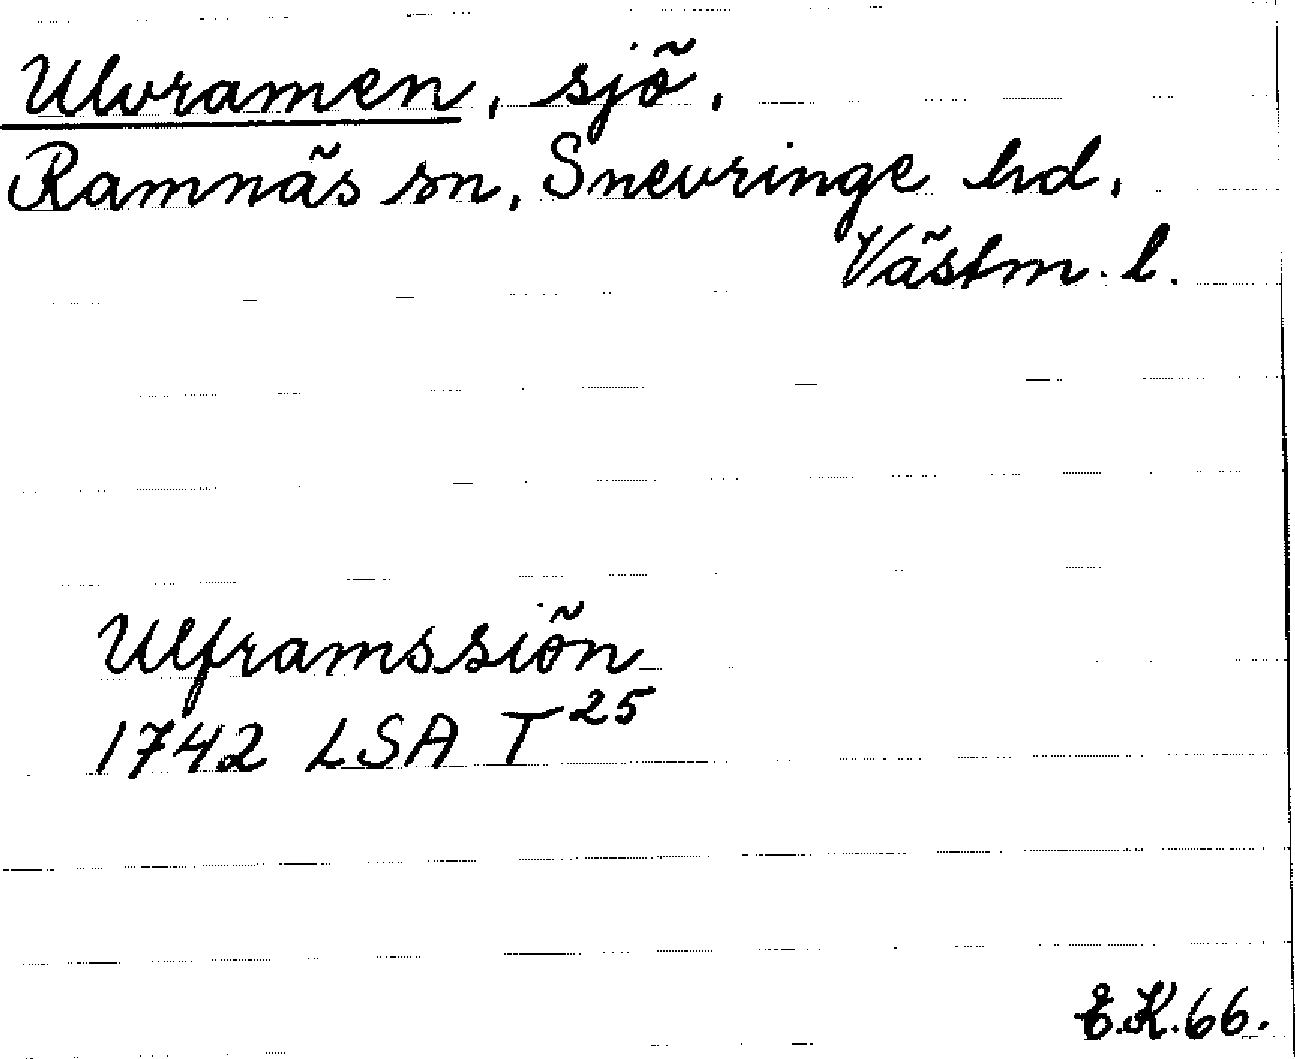 Ulvramen, sjö,
Ramnäs sn, Snevringe hd,
Västm. l.
Ulframssiön
1742 LSA T 25
E.K.66.